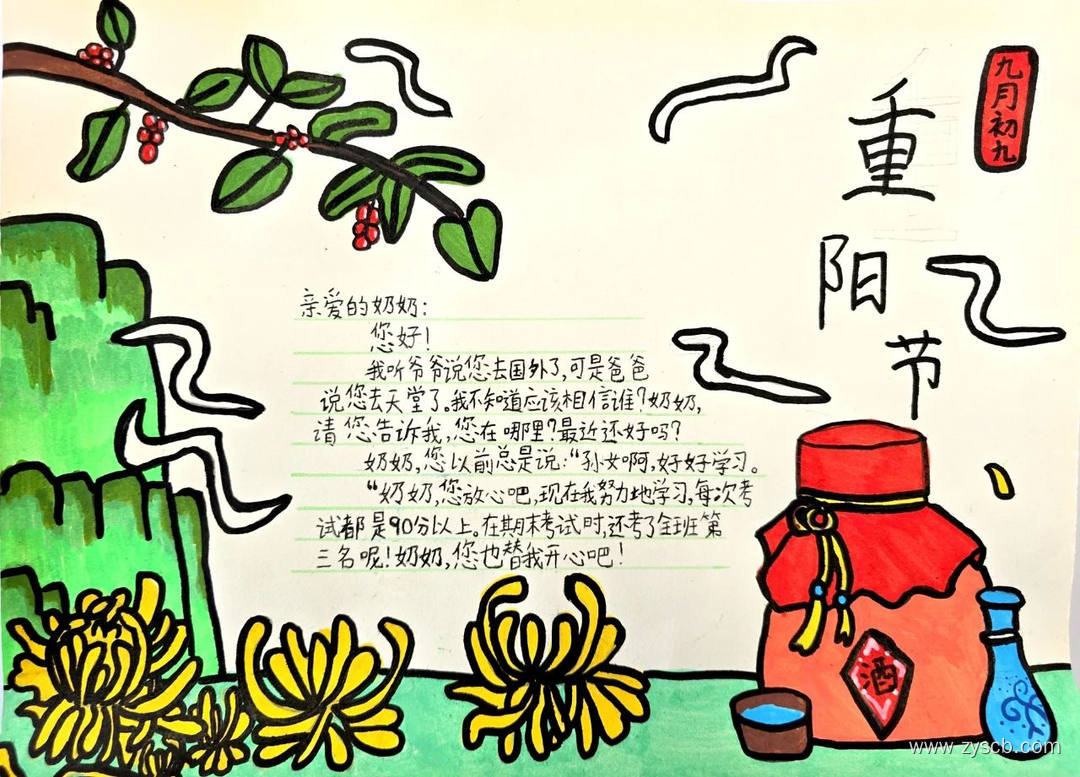 九月初九
重阳节
亲爱的奶奶:
您好!
我听爷爷说您去国外了,可是爸爸
说您去天堂了。我不知道应该相信谁?奶奶,
请您告诉我,您在哪里?最近还好吗?
奶奶,您以前总是说:“孙女啊,好好学习。
“奶奶,您放心吧,现在我努力地学习,每次考
试都是90分以上。在期末考试时,还考了全班第
三名呢!奶奶,您也替我开心吧!
酒
www.zyscb.com